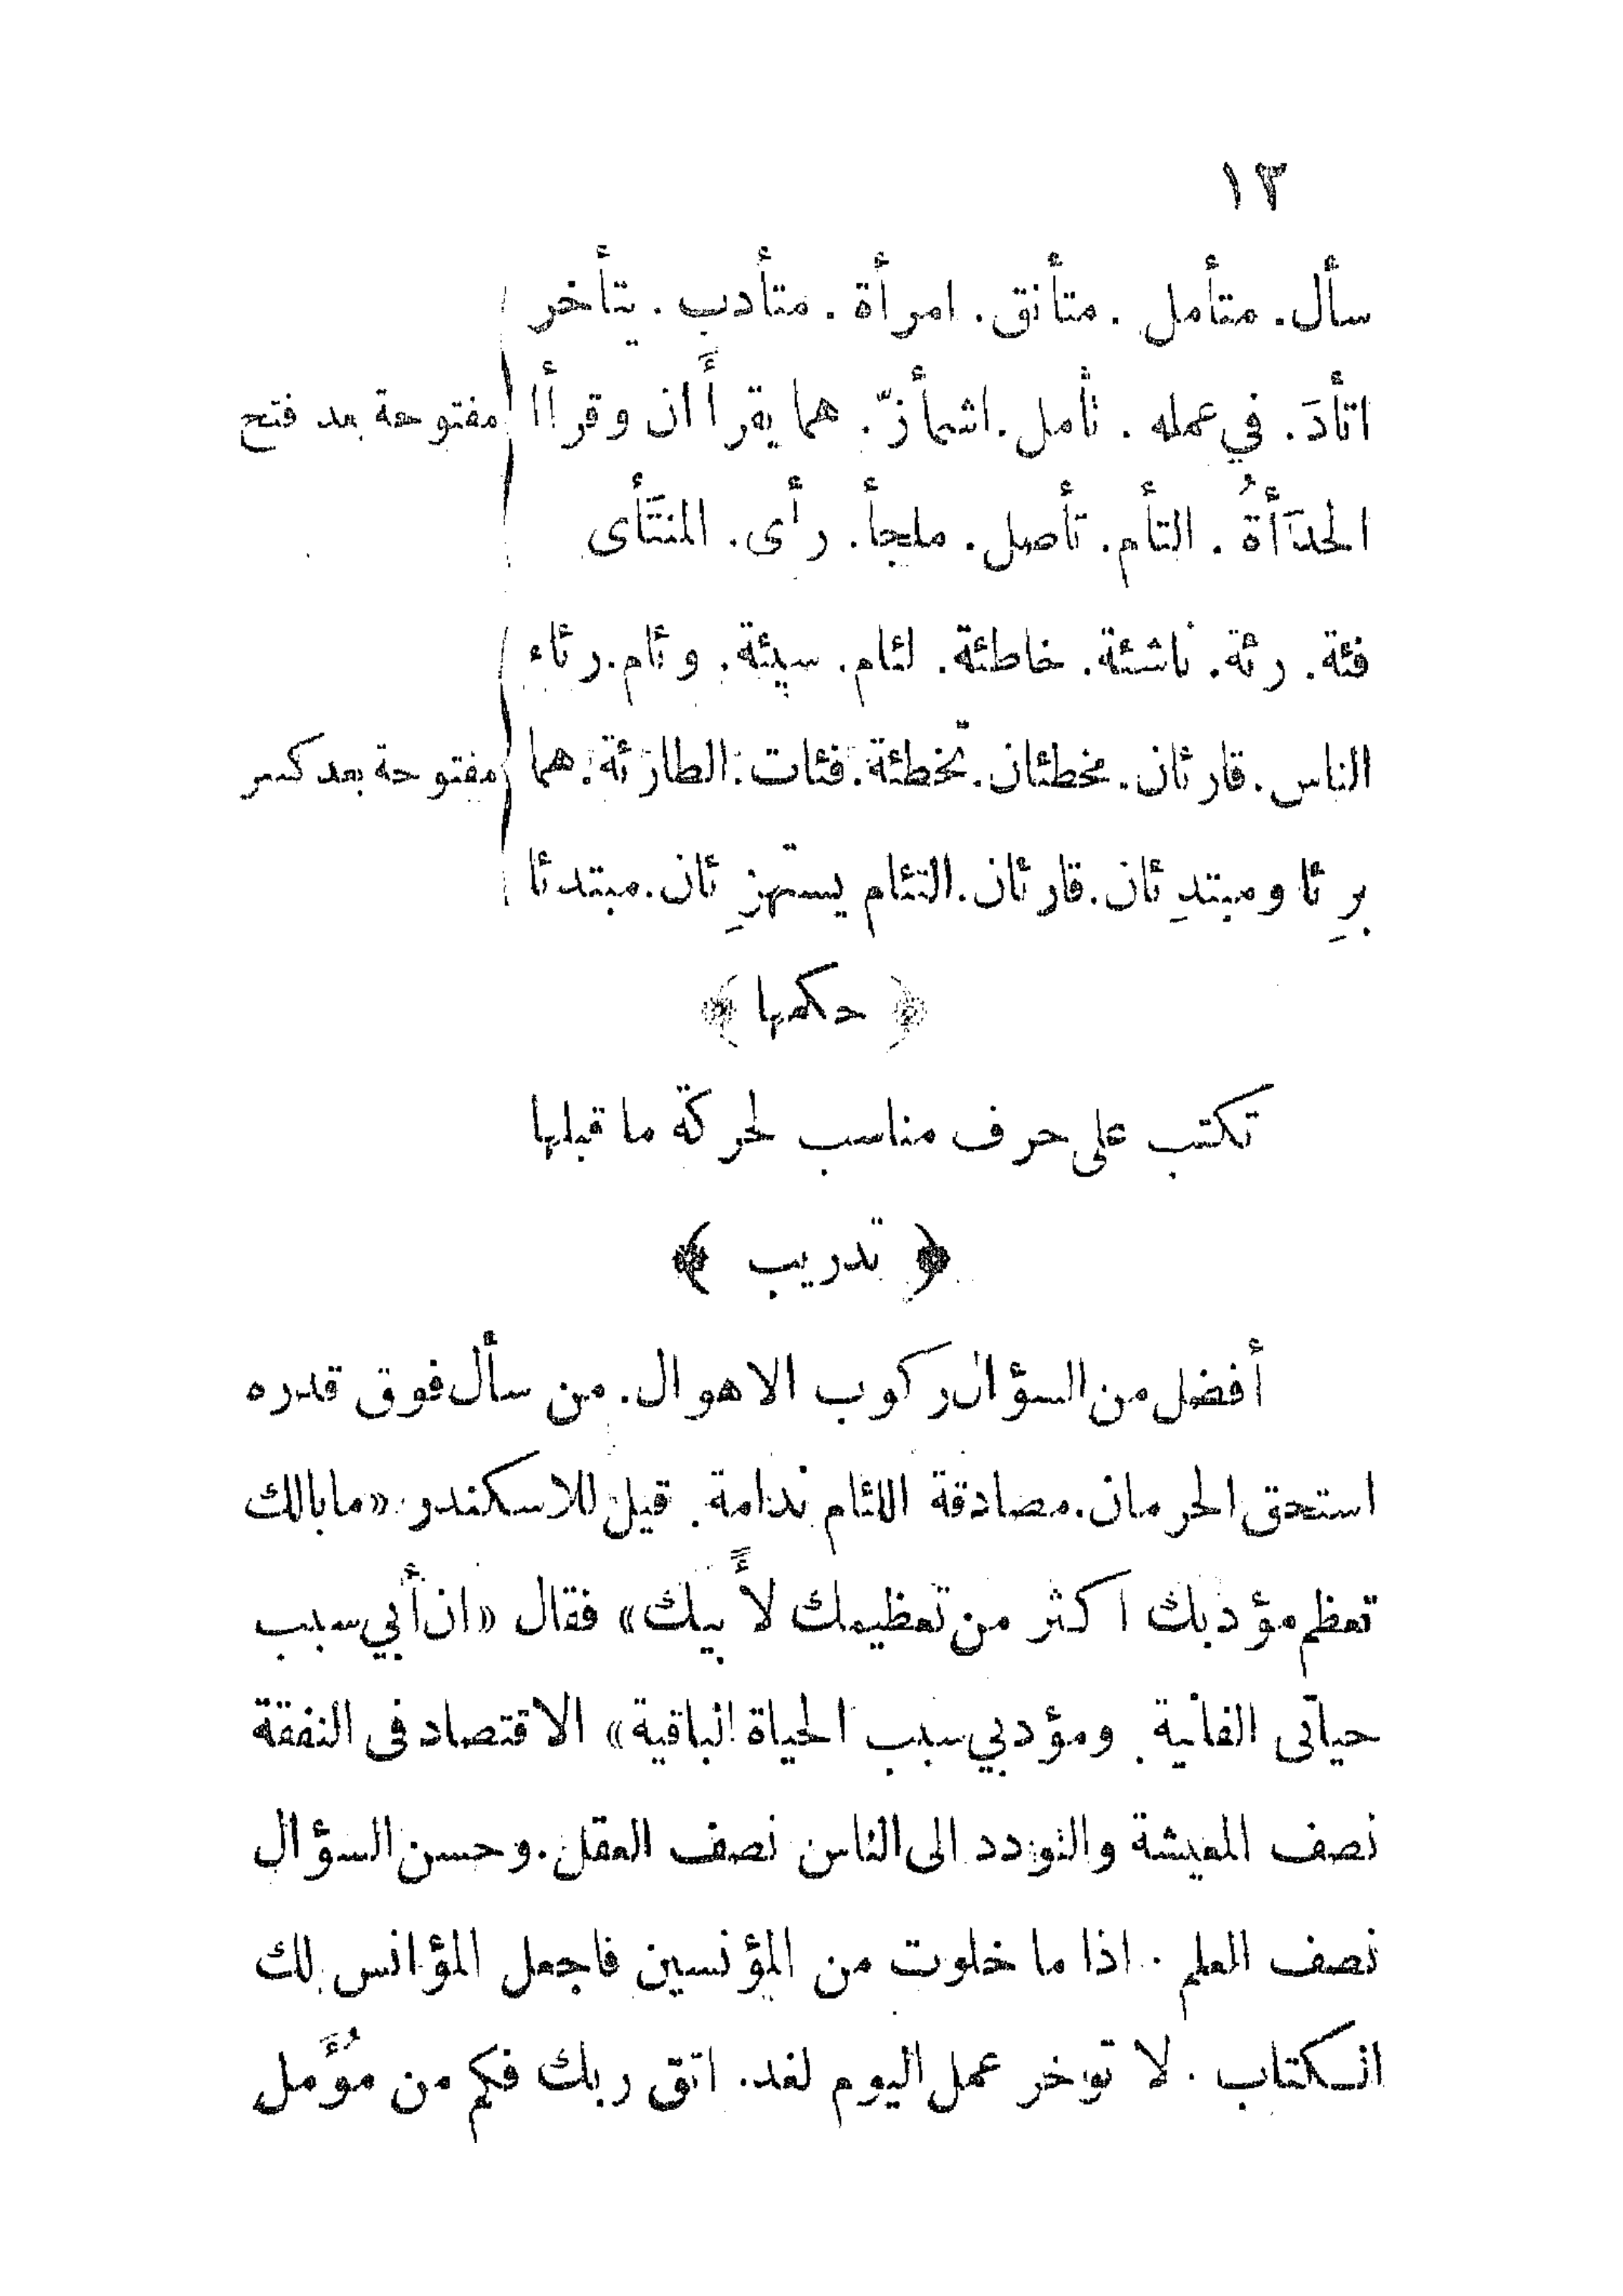 ١٣
سأل. متأمل. متأنق. امرأة. متأدب. يتأخر
اتأدَ. في عمله. تأمل. اشمأزّ. هما يقرأَان وقرأا مفتوحة بعد فتح
الحدَأَةُ. التأم. تأصل. ملجأ. رأى. المنتَأى
فئة. رئة. ناشئة. خاطئة. لئام. سيئة. وئام. رئاء
الناس. قارئان. مخطئان. تخطئة. فئات. الطارئة. هما مفتوحة بعد كسر
برِئا ومبتدِئان. قارئان. التئام يستهزِئان. مبتدئا
﴿ حكمها ﴾
تكتب على حرف مناسب لحركة ما قبلها
﴿ تدريب ﴾
أفضل من السؤال ركوب الاهوال. من سأل فوق قدره
استحق الحرمان. مصادقة اللئام ندامة. قيل للاسكندر «مابالك
تعظم مؤدبك اكثر من تعظيمك لأَبيك» فقال «ان أبي سبب
حياتى الفانية. ومؤدبي سبب الحياة الباقية» الاقتصاد فى النفقة
نصف المعيشة والتودد الى الناس نصف العقل. وحسن السؤال
نصف العلم. اذا ما خلوت من المؤنسين فاجعل المؤانس لك
الكتاب. لا توخر عمل اليوم لغد. اتق ربك فكم من مُؤَمل